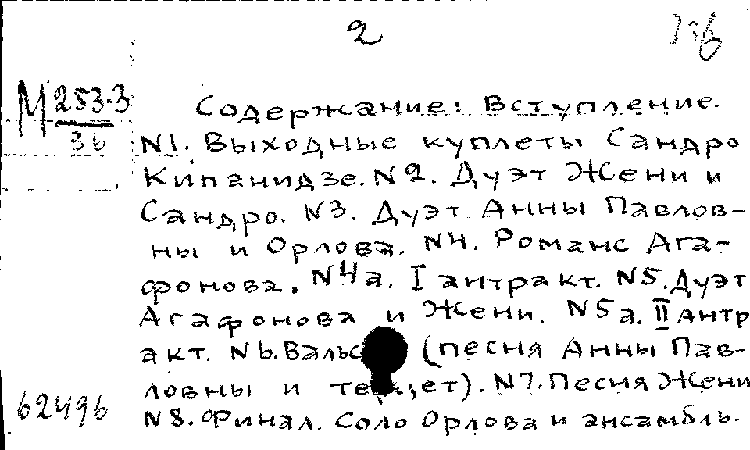 2
M 253-3
36
Содержание: Вступление.
N1. Выходные куплеты Сандро
Кипанидзе. N2. Дуэт Жени и
Сандро. N3. Дуэт Анны Павлов-
ны и Орлова. N4. Романс Ага-
фонова. N4а. I антракт. N5. Дуэт
Агафонова и Жени. N5а. II антр
акт. N6. Вальс (песня Анны Пав-
ловны и терцет). N7. Песня Жени
N8. Финал. Соло Орлова и ансамбль.
62496